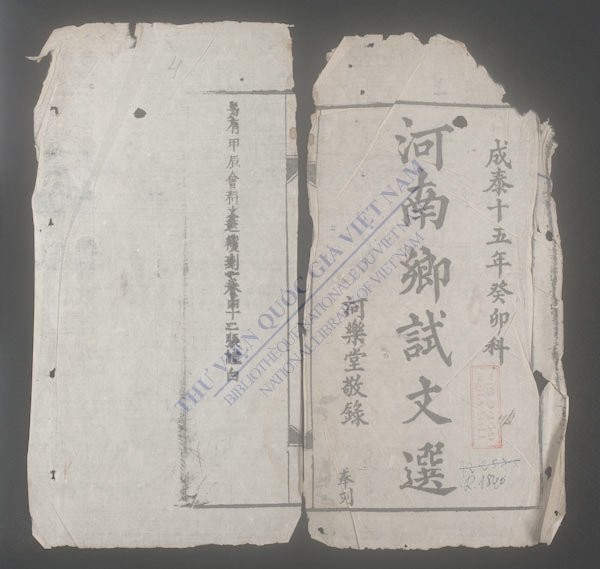 成泰十五年癸卯科
河南鄉試文選
河樂堂敬錄
奉刻
有甲辰會科文選續刻
THƯ VIỆN QUỐC GIA VIỆT NAM
BIBLIOTHÈQUE NATIONALE DU VIETNAM
NATIONAL LIBRARY OF VIETNAM
R.1840
4